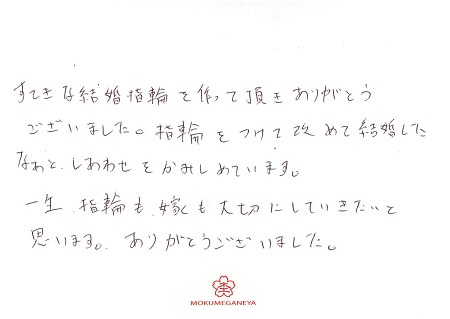 すてきな結婚指輪を作って頂きありがとう
ございました。指輪をつけて改めて結婚した
なぁと、しあわせをかみしめています。
一生、指輪も、嫁も大切にしていきたいと
思います。ありがとうございました。
MOKUMEGANEYA